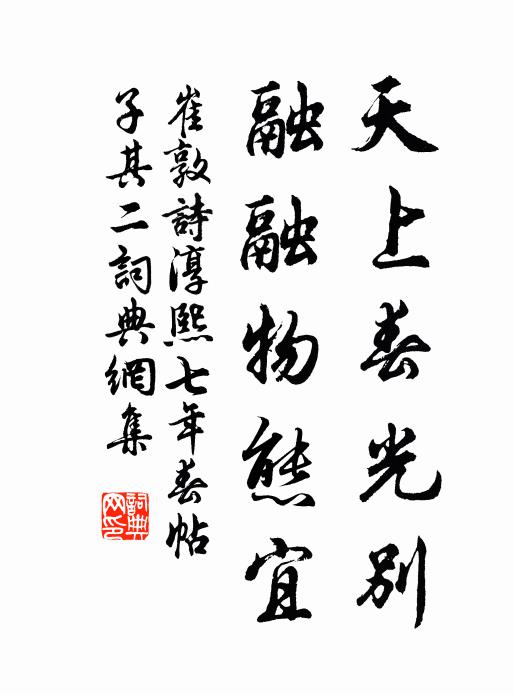 天上春光别
融融物態宜
崔敦詩淳熙七年春帖
子其二詞典網集
詞典网印